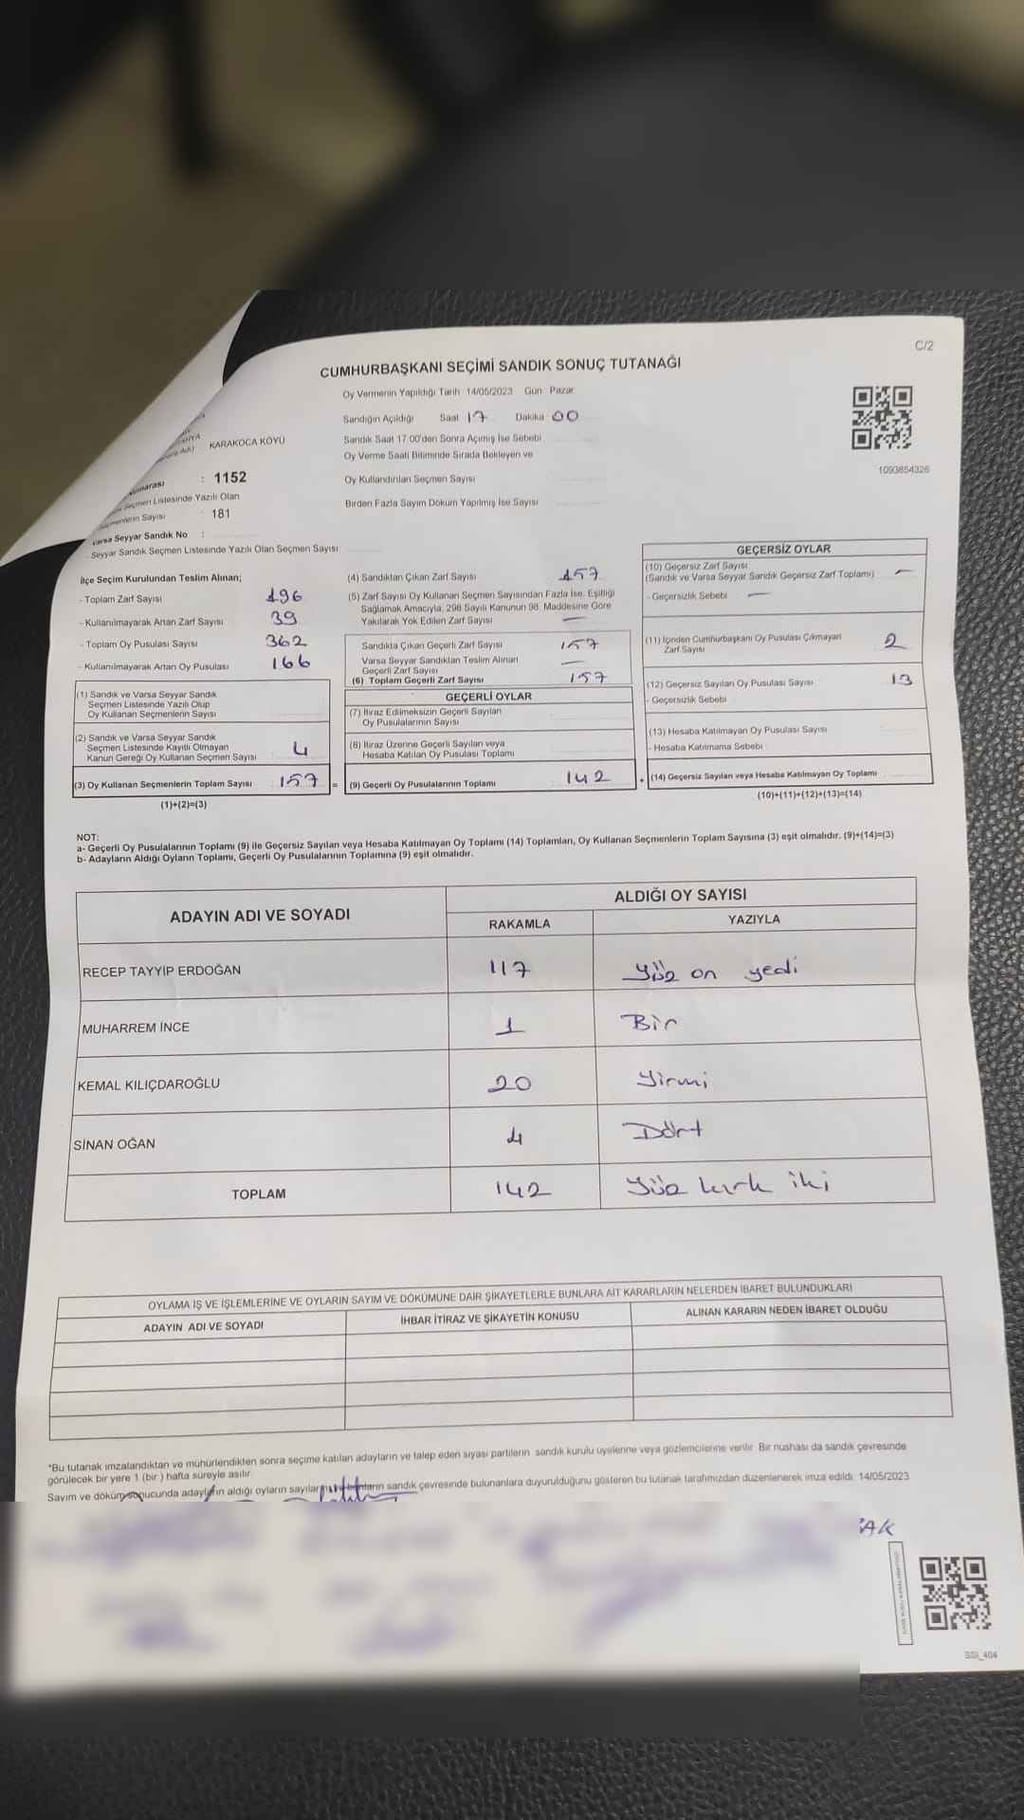 C/2
CUMHURBAŞKANI SEÇİMİ SANDIK SONUÇ TUTANAĞI
Oy Vermenin Yapıldığı Tarih 14/05/2023 Gün Pazar
Sandığın Açıldığı Saat 17 Dakika 00
KARAKOCA KÖYÜ
Sandık Saat 17.00'den Sonra Açılmış İse Sebebi
Oy Verme Saati Bitiminde Sırada Bekleyen ve
Oy Kullandırılan Seçmen Sayısı
1093854326
: 1152
Seçmen Listesinde Yazılı Olan
Seçmenlerin Sayısı 181
Birden Fazla Sayım Döküm Yapılmış İse Sayısı
Varsa Seyyar Sandık No :
Seyyar Sandık Seçmen Listesinde Yazılı Olan Seçmen Sayısı
İlçe Seçim Kurulundan Teslim Alınan;
- Toplam Zarf Sayısı 196
- Kullanılmayarak Artan Zarf Sayısı 39
- Toplam Oy Pusulası Sayısı 362
- Kullanılmayarak Artan Oy Pusulası 166
(1) Sandık ve Varsa Seyyar Sandık
Seçmen Listesinde Yazılı Olup
Oy Kullanan Seçmenlerin Sayısı
(2) Sandık ve Varsa Seyyar Sandık
Seçmen Listesinde Kayıtlı Olmayan
Kanun Gereği Oy Kullanan Seçmen Sayısı 4
(3) Oy Kullanan Seçmenlerin Toplam Sayısı 157 =
(1)+(2)=(3)
(4) Sandıktan Çıkan Zarf Sayısı 157
(5) Zarf Sayısı Oy Kullanan Seçmen Sayısından Fazla İse, Eşitliği
Sağlamak Amacıyla, 298 Sayılı Kanunun 98. Maddesine Göre
Yakılarak Yok Edilen Zarf Sayısı —
Sandıkta Çıkan Geçerli Zarf Sayısı 157
Varsa Seyyar Sandıktan Teslim Alınan
Geçerli Zarf Sayısı —
(6) Toplam Geçerli Zarf Sayısı 157
GEÇERLİ OYLAR
(7) İtiraz Edilmeksizin Geçerli Sayılan
Oy Pusulalarının Sayısı
(8) İtiraz Üzerine Geçerli Sayılan veya
Hesaba Katılan Oy Pusulası Toplamı
(9) Geçerli Oy Pusulalarının Toplamı 142 +
GEÇERSİZ OYLAR
(10) Geçersiz Zarf Sayısı
(Sandık ve Varsa Seyyar Sandık Geçersiz Zarf Toplamı) —
- Geçersizlik Sebebi —
(11) İçinden Cumhurbaşkanı Oy Pusulası Çıkmayan
Zarf Sayısı 2
(12) Geçersiz Sayılan Oy Pusulası Sayısı 13
- Geçersizlik Sebebi
(13) Hesaba Katılmayan Oy Pusulası Sayısı
- Hesaba Katılmama Sebebi
(14) Geçersiz Sayılan veya Hesaba Katılmayan Oy Toplamı
(10)+(11)+(12)+(13)=(14)
NOT:
a- Geçerli Oy Pusulalarının Toplamı (9) ile Geçersiz Sayılan veya Hesaba Katılmayan Oy Toplamı (14) Toplamları, Oy Kullanan Seçmenlerin Toplam Sayısına (3) eşit olmalıdır. (9)+(14)=(3)
b- Adayların Aldığı Oyların Toplamı, Geçerli Oy Pusulalarının Toplamına (9) eşit olmalıdır.
ADAYIN ADI VE SOYADI
ALDIĞI OY SAYISI
RAKAMLA YAZIYLA
RECEP TAYYİP ERDOĞAN 117 Yüz on yedi
MUHARREM İNCE 1 Bir
KEMAL KILIÇDAROĞLU 20 Yirmi
SİNAN OĞAN 4 Dört
TOPLAM 142 Yüz kırk iki
OYLAMA İŞ VE İŞLEMLERİNE VE OYLARIN SAYIM VE DÖKÜMÜNE DAİR ŞİKAYETLERLE BUNLARA AİT KARARLARIN NELERDEN İBARET BULUNDUKLARI
ADAYIN ADI VE SOYADI İHBAR İTİRAZ VE ŞİKAYETİN KONUSU ALINAN KARARIN NEDEN İBARET OLDUĞU
*Bu tutanak imzalandıktan ve mühürlendikten sonra seçime katılan adayların ve talep eden siyasi partilerin sandık kurulu üyelerine veya gözlemcilerine verilir. Bir nüshası da sandık çevresinde
görülecek bir yere 1 (bir) hafta süreyle asılır.
Sayım ve döküm sonucunda adayların aldığı oyların sayıları sandık çevresinde bulunanlara duyurulduğunu gösteren bu tutanak tarafımızdan düzenlenerek imza edildi. 14/05/2023
AK
SSI_404